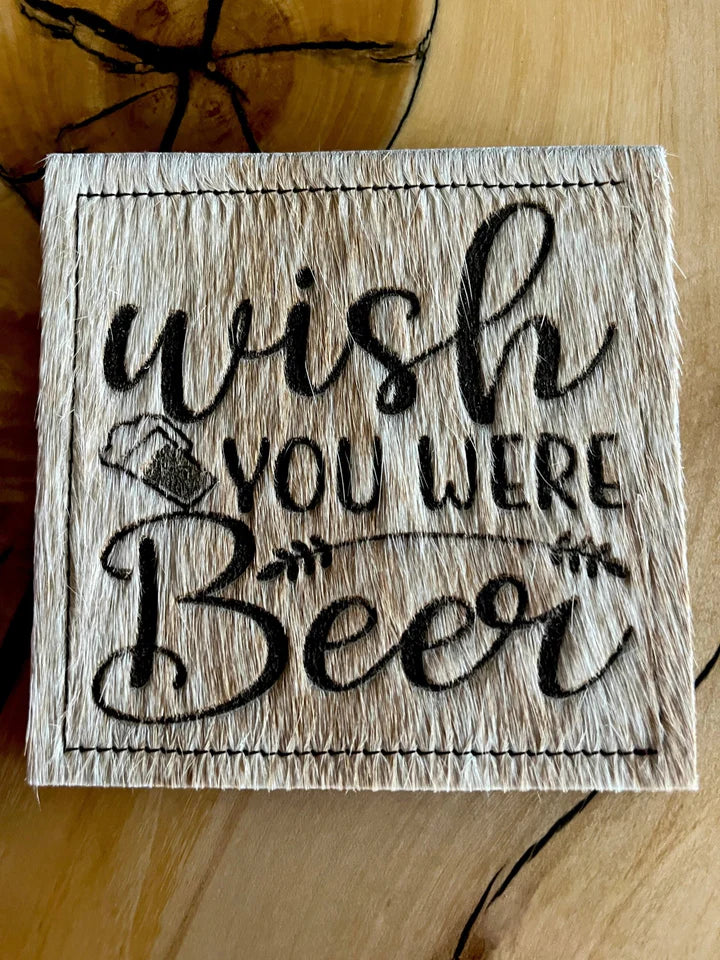 wish
YOU WERE
Beer